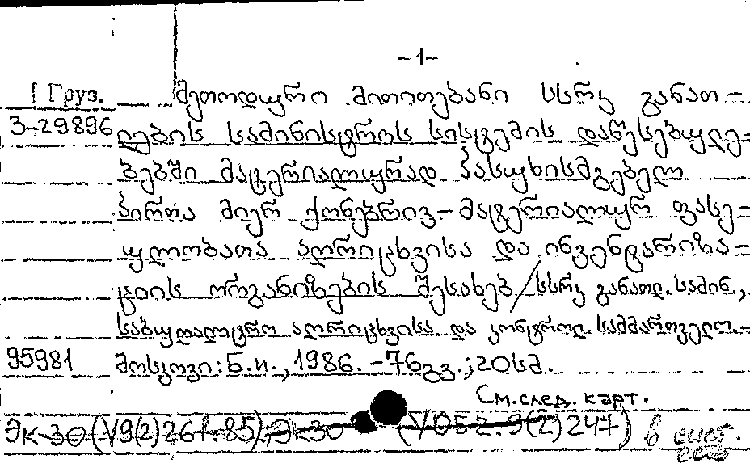 -1-
1 Груз. მეთოდური მითითებანი სსრკ განათ-
3-29896 ლების სამინისტროს სისტემის დაწესებულე-
ბებში მატერიალურად პასუხისმგებელ
პირთა მიერ ქონებრივ-მატერიალურ ფასე-
ულობათა აღრიცხვისა და ინვენტარიზა-
ციის ორგანიზების შესახებ/სსრკ განათლ. სამინ.,
საბუღალტრო აღრიცხვისა და კონტროლ. სამმართველო.-
95981 მოსკოვი: Б.и., 1986. -76გვ.; 20სმ.
См.след. карт.
ЭК 30 (V9(2)261.85) ЭК30 (V052.9(2)247) в